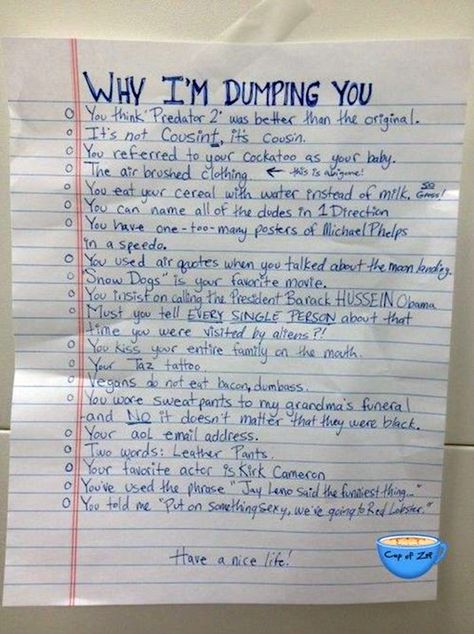 WHY I'M DUMPING YOU
You think 'Predator 2' was better than the original.
It's not Cousint, it's cousin.
You referred to your cockatoo as your baby.
The air brushed clothing. ← this is
You eat your cereal with water instead of milk. SO Gross!
You can name all of the dudes in 1 Direction
You have one-too-many posters of Michael Phelps
in a speedo.
You used air quotes when you talked about the moon landing.
"Snow Dogs" is your favorite movie.
You insist on calling the President Barack HUSSEIN Obama
Must you tell EVERY SINGLE PERSON about that
time you were visited by aliens?!
You kiss your entire family on the mouth.
Your Taz tattoo.
Vegans do not eat bacon, dumbass.
You wore sweatpants to my grandma's funeral
-and NO it doesn't matter that they were black.
Your aol email address.
Two words: Leather Pants.
Your favorite actor is Kirk Cameron
You've used the phrase "Jay Leno said the funniest thing..."
You told me "Put on something sexy, we're going to Red Lobster."
Have a nice life!
Cup of Zup